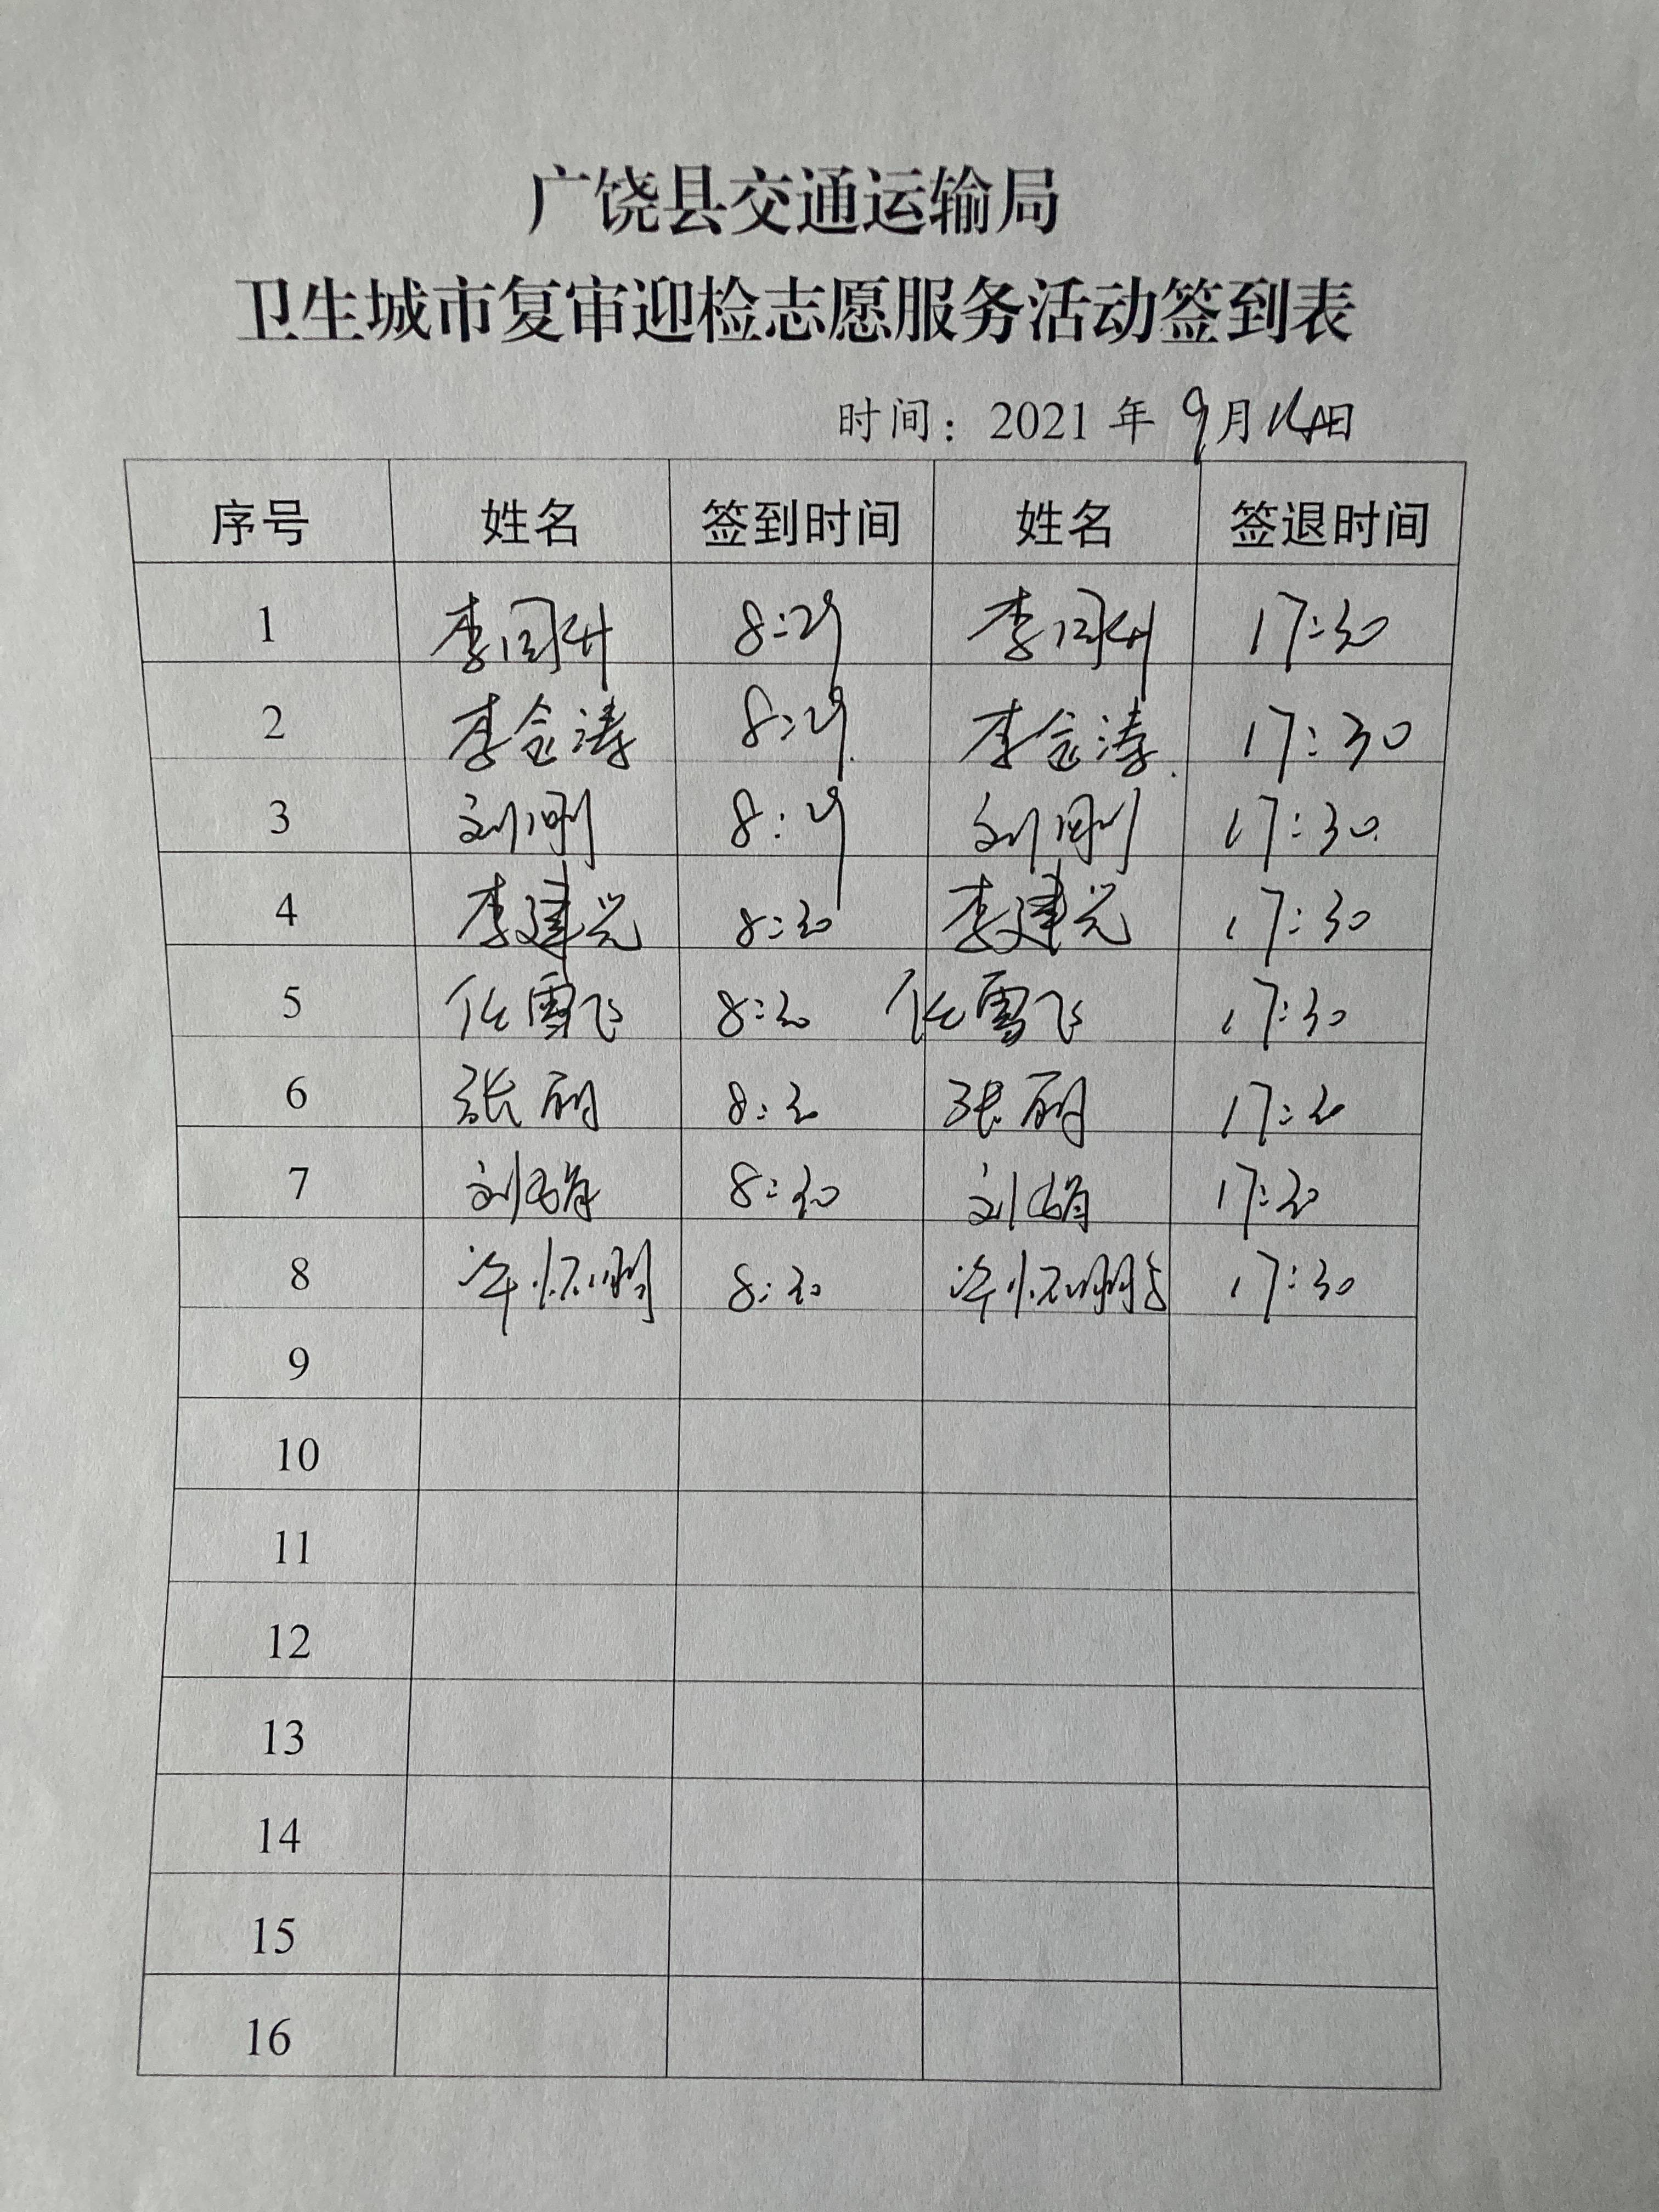 广饶县交通运输局
卫生城市复审迎检志愿服务活动签到表
时间：2021 年 9月14日
序号 姓名 签到时间 姓名 签退时间
1 李同升 8:29 李同升 17:30
2 李金涛 8:29 李金涛 17:30
3 刘刚 8:29 刘刚 17:30
4 李建光 8:30 李建光 17:30
5 任雪飞 8:30 任雪飞 17:30
6 张丽 8:30 张丽 17:30
7 刘 8:30 刘 17:30
8 8:30 17:30
9
10
11
12
13
14
15
16